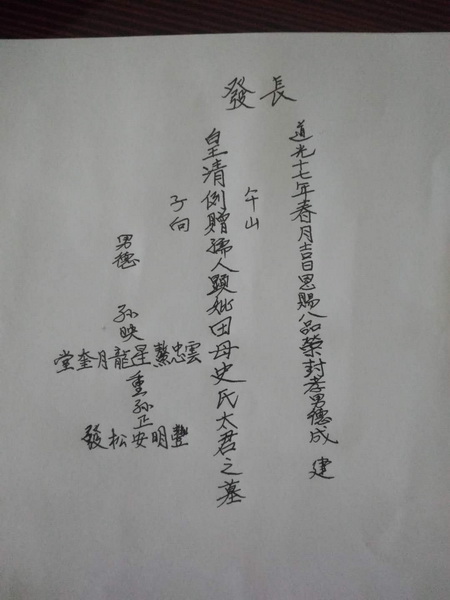 長發
道光十七年春月吉日恩賜八品榮封孝男德成 建
午山
皇清例贈孺人顕妣田母史氏太君之墓
子向
孫映
雲忠鰲星龍月奎堂
重孫正
豊明安松發
男德